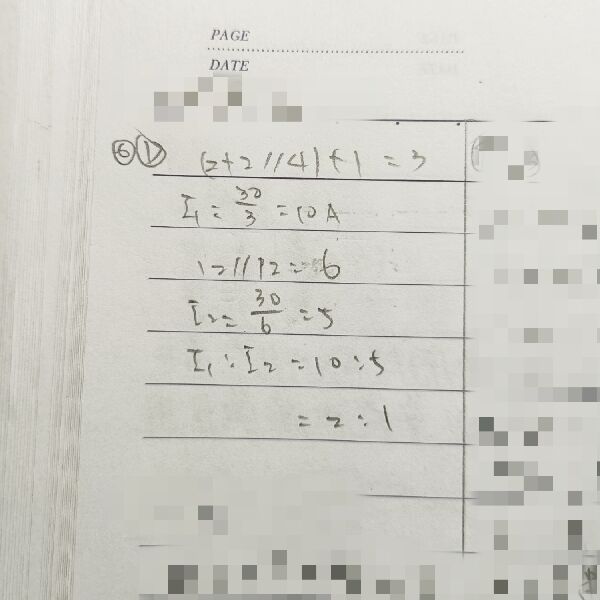 PAGE
DATE
⑥ ① (2+2//4)+1 = 3
I₁ = 30/3 = 10A
12//12 = 6
I₂ = 30/6 = 5
I₁ : I₂ = 10 : 5
= 2 : 1